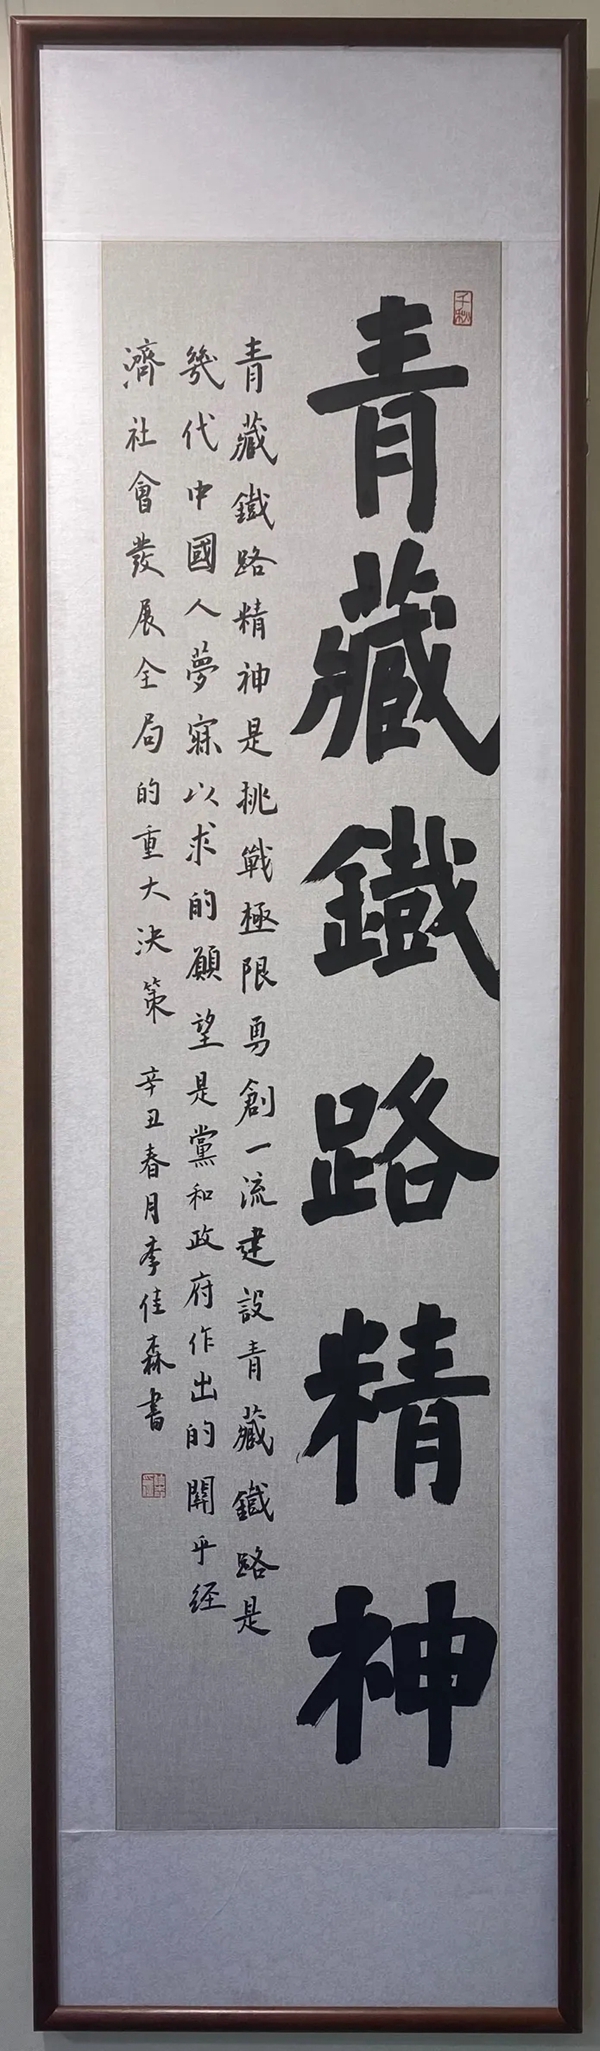 千秋
青藏鐵路精神
青藏鐵路精神是挑戰極限勇創一流建設青藏鐵路是
幾代中國人夢寐以求的願望是黨和政府作出的關乎经
濟社會發展全局的重大決策 辛丑春月李佳森書